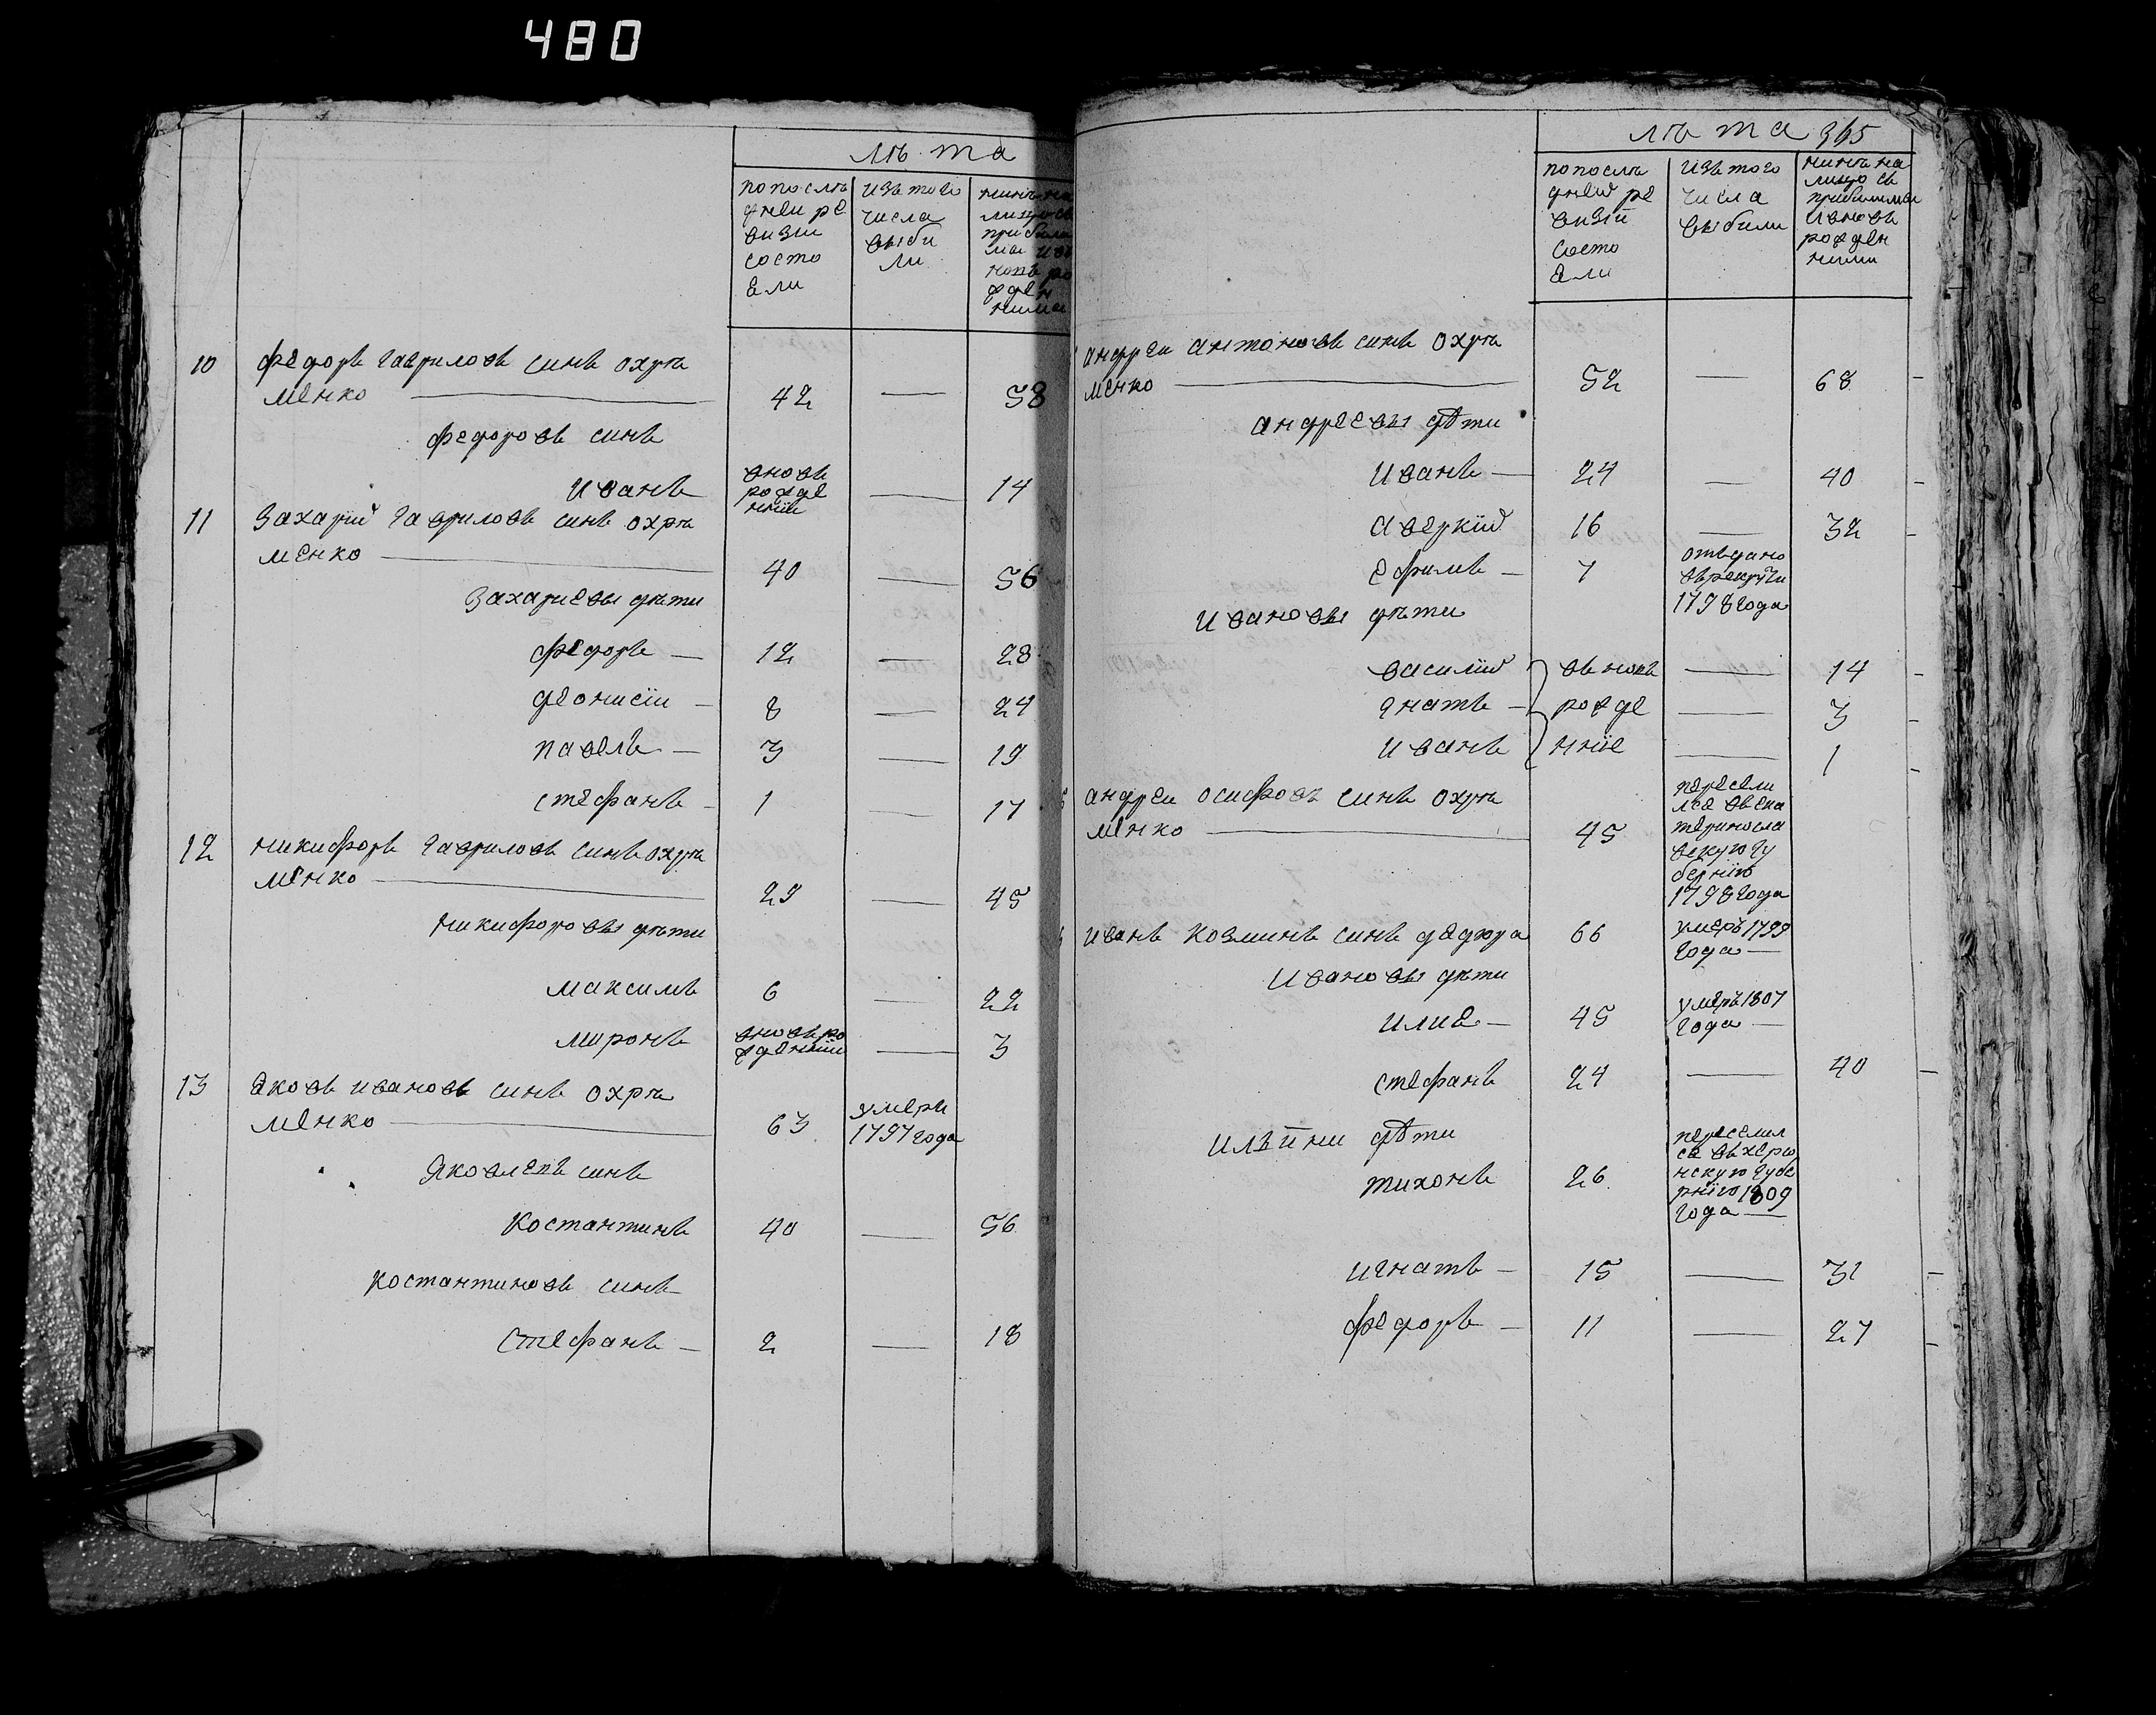 480
лѣта
попослѣ
дней ре
визии
состо
ели
изъ того
числа
выбы
ли
10 федоръ гавриловъ синъ охрѣ
менко 42 — 58
федоровъ синъ
иванъ вновь рожде нніи — 14
11 Захарий гавриловъ синъ охрѣ
менко 40 — 56
Захариевы дѣти
федоръ — 12 — 28
деонисіи — 8 — 24
павелъ — 3 — 19
стефанъ — 1 — 17
12 никифоръ гавриловъ синъ охрѣ
менко 29 — 45
никифоровы дѣти
максимъ 6 — 22
миронъ вновь ро жденніи — 3
13 Яковъ ивановъ синъ охрѣ
менко 63 умеръ 1797 года
Яковлевъ синъ
Костантинъ 40 — 56
костантиновъ синъ
Стефанъ — 2 — 18
лѣта 365
попослѣ
дней ре
визіи
состо
ели
изъ того
числа
выбили
нинѣ на
лицо съ
прибилими
и вновь
рожден
ними
андреи антоновъ синъ охрѣ
менко 52 — 68
андреевы дѣти
иванъ — 24 — 40
аверкій 16 — 32
ефимъ — 7 отъдано въ рекруты 1798 года
ивановы дѣти
василий вновь — 14
гнатъ — рожде — 3
иванъ нніе — 1
андреи осифовъ синъ охрѣ
менко 45 пересели лсе въ ека терносла вскую гу бернію 1798 года
иванъ козминъ синъ дедюра 66 умеръ 1799 года —
ивановы дѣти
илие — 45 умеръ 1807 года —
стефанъ 24 — 40
ильини дѣти
тихонъ 26 пересилил се въ херсо нскую губе рнію 1809 года —
игнатъ — 15 — 31
федоръ — 11 — 27